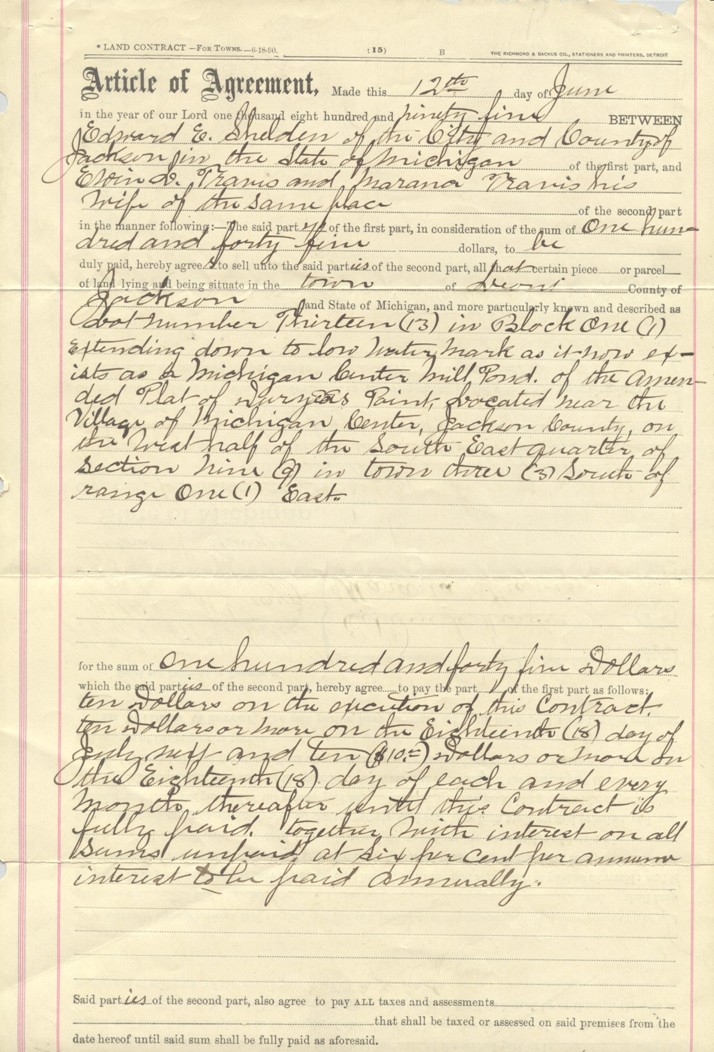 * LAND CONTRACT—FOR TOWNS.—6-18-90. (15) B THE RICHMOND & BACKUS CO., STATIONERS AND PRINTERS, DETROIT
Article of Agreement, Made this 12th day of June
in the year of our Lord one thousand eight hundred and ninety five BETWEEN
Edward E. Shelden of the City and County of
Jackson in the State of Michigan of the first part, and
Elvin D. Travis and Marana Travis his
Wife of the same place of the second part
in the manner following:—The said party of the first part, in consideration of the sum of One hun-
dred and forty five dollars, to be
duly paid, hereby agrees to sell unto the said parties of the second part, all that certain piece or parcel
of land lying and being situate in the town of Leoni County of
Jackson and State of Michigan, and more particularly known and described as
Lot number Thirteen (13) in Block One (1)
extending down to low water mark as it now ex-
ists as a Michigan Center Mill Pond. of the Amen-
ded Plat of Point, Located near the
Village of Michigan Center, Jackson County, on
the West half of the South East quarter of
Section Nine (9) in town three (3) South of
range One (1) East.
for the sum of One hundred and forty five Dollars
which the said parties of the second part, hereby agree to pay the party of the first part as follows:
ten Dollars on the execution of this Contract.
ten Dollars or more on the Eighteenth (18) day of
July next and ten ($10.00) Dollars or more on
the Eighteenth (18) day of each and every
Month thereafter until this Contract is
fully paid. together with interest on all
Sums unpaid at Six per cent per annum
interest to be paid annually.
Said parties of the second part, also agree to pay ALL taxes and assessments
that shall be taxed or assessed on said premises from the
date hereof until said sum shall be fully paid as aforesaid.